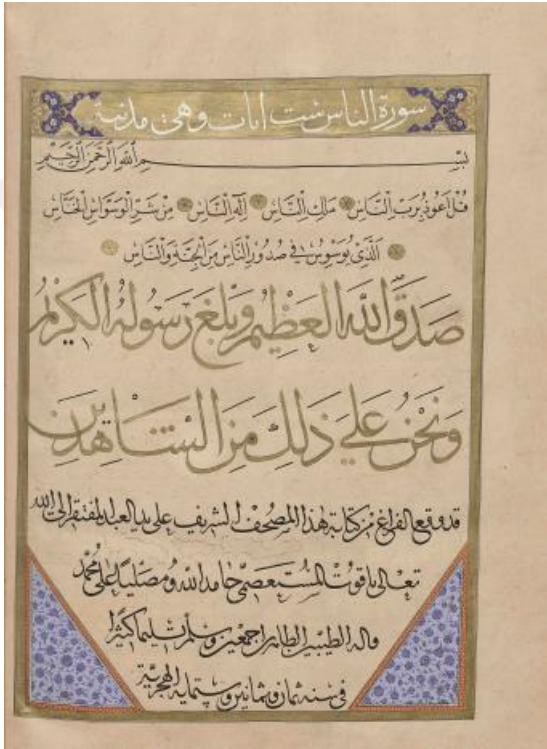 سورة الناس ست ايات وهى مدنية
بِسْمِ اللَّهِ الرَّحْمَنِ الرَّحِيمِ
قُلْ أَعُوذُ بِرَبِّ النَّاسِ مَلِكِ النَّاسِ إِلَهِ النَّاسِ مِنْ شَرِّ الْوَسْوَاسِ الْخَنَّاسِ
الَّذِي يُوَسْوِسُ فِي صُدُورِ النَّاسِ مِنَ الْجِنَّةِ وَالنَّاسِ
صَدَقَ اللَّهُ الْعَظِيمُ وَبَلَّغَ رَسُولُهُ الْكَرِيمُ
وَنَحْنُ عَلَى ذَلِكَ مِنَ الشَّاهِدِينَ
قد وقع الفراغ من كتابة هذا المصحف الشريف على يد العبد المفتقر الى الله
تعالى ياقوت المستعصمى حامدا لله ومصليا على محمد
واله الطيبين الطاهرين اجمعين وسلم تسليما كثيرا
فى سنه ثمان وثمانين وستمايه الهجرية